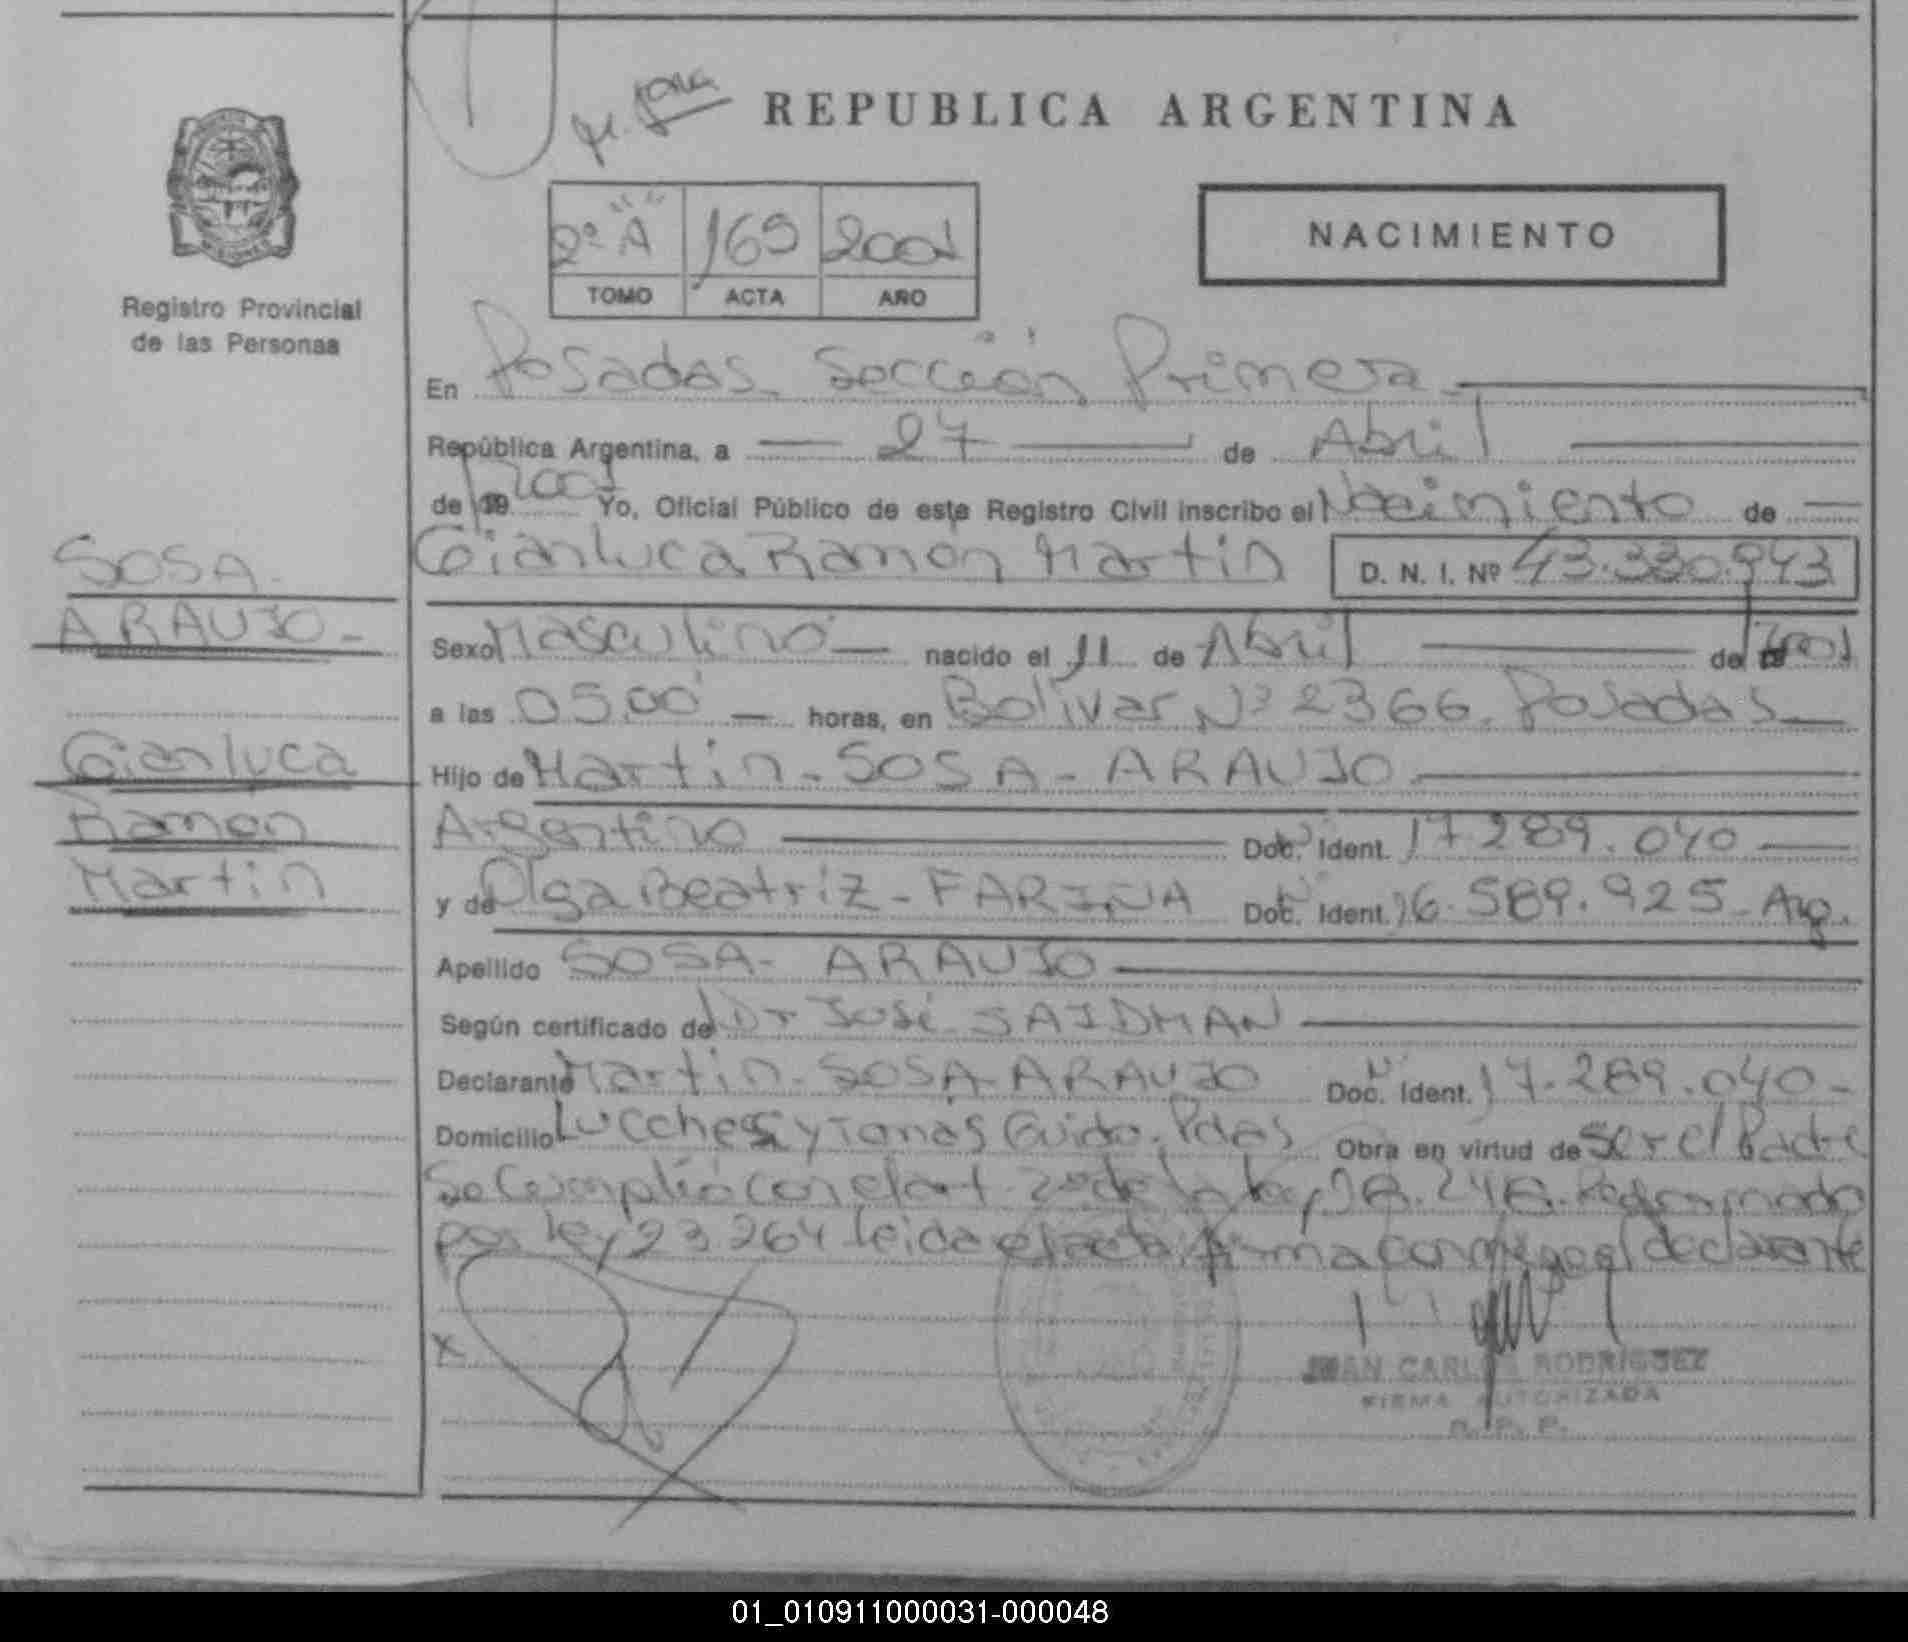 REPUBLICA ARGENTINA
2º A 169 2001
TOMO ACTA AÑO
NACIMIENTO
Registro Provincial
de las Personas
SOSA
ARAUJO-
Gianluca
Ramon
Martin
En Posadas Sección Primera
República Argentina, a 27 de Abril
de 19 2001 Yo, Oficial Público de este Registro Civil inscribo el Nacimiento de
Gianluca Ramón Martin D. N. I. Nº 43.330.943
Sexo Masculino nacido el 11 de Abril de 2001
a las 05,00 horas, en Bolivar Nº 2366. Posadas
Hijo de Martin - SOSA - ARAUJO
Argentino Doc. Ident. 17.289.040
y de Olga Beatriz - FARIÑA Doc. Ident. 16.589.925 - Arg.
Apellido SOSA - ARAUJO
Según certificado de Dr José SAIDMAN
Declarante Martin - SOSA - ARAUJO Doc. Ident. 17.289.040 -
Domicilio Lucchesi y Tomás Guido. Pdas Obra en virtud de ser el Padre
Se Cumplió con el art. 20 de la Ley 18.248. Reformado
por Ley 23.264 leida el acta firma conmigo el declarante
X
JUAN CARLOS RODRIGUEZ
FIRMA AUTORIZADA
R. P. P.
01_010911000031-000048